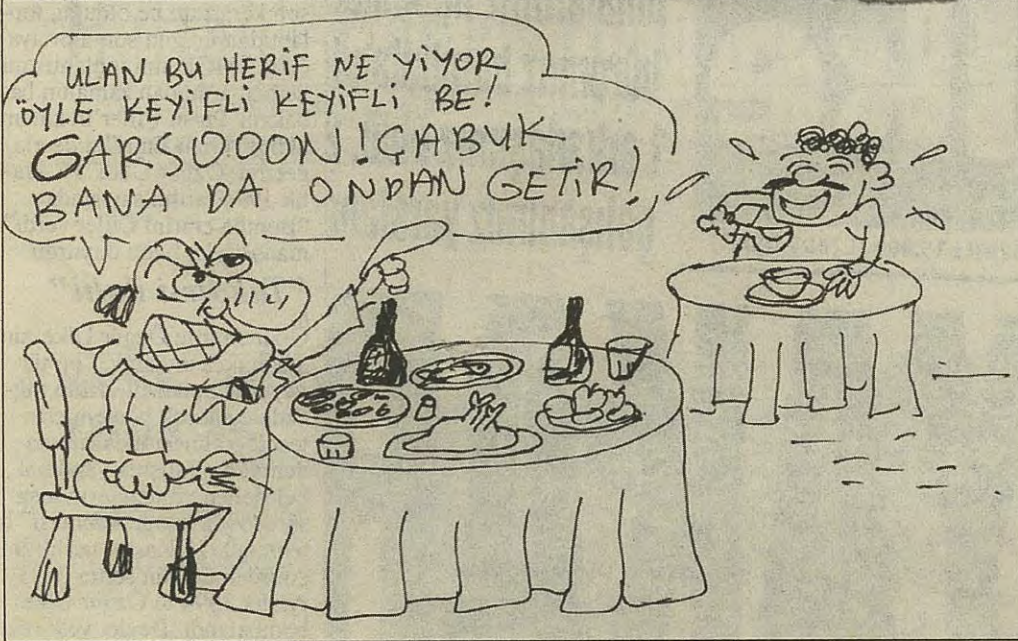 ULAN BU HERİF NE YİYOR
ÖYLE KEYİFLİ KEYİFLİ BE!
GARSOOON! ÇABUK
BANA DA ONDAN GETİR!